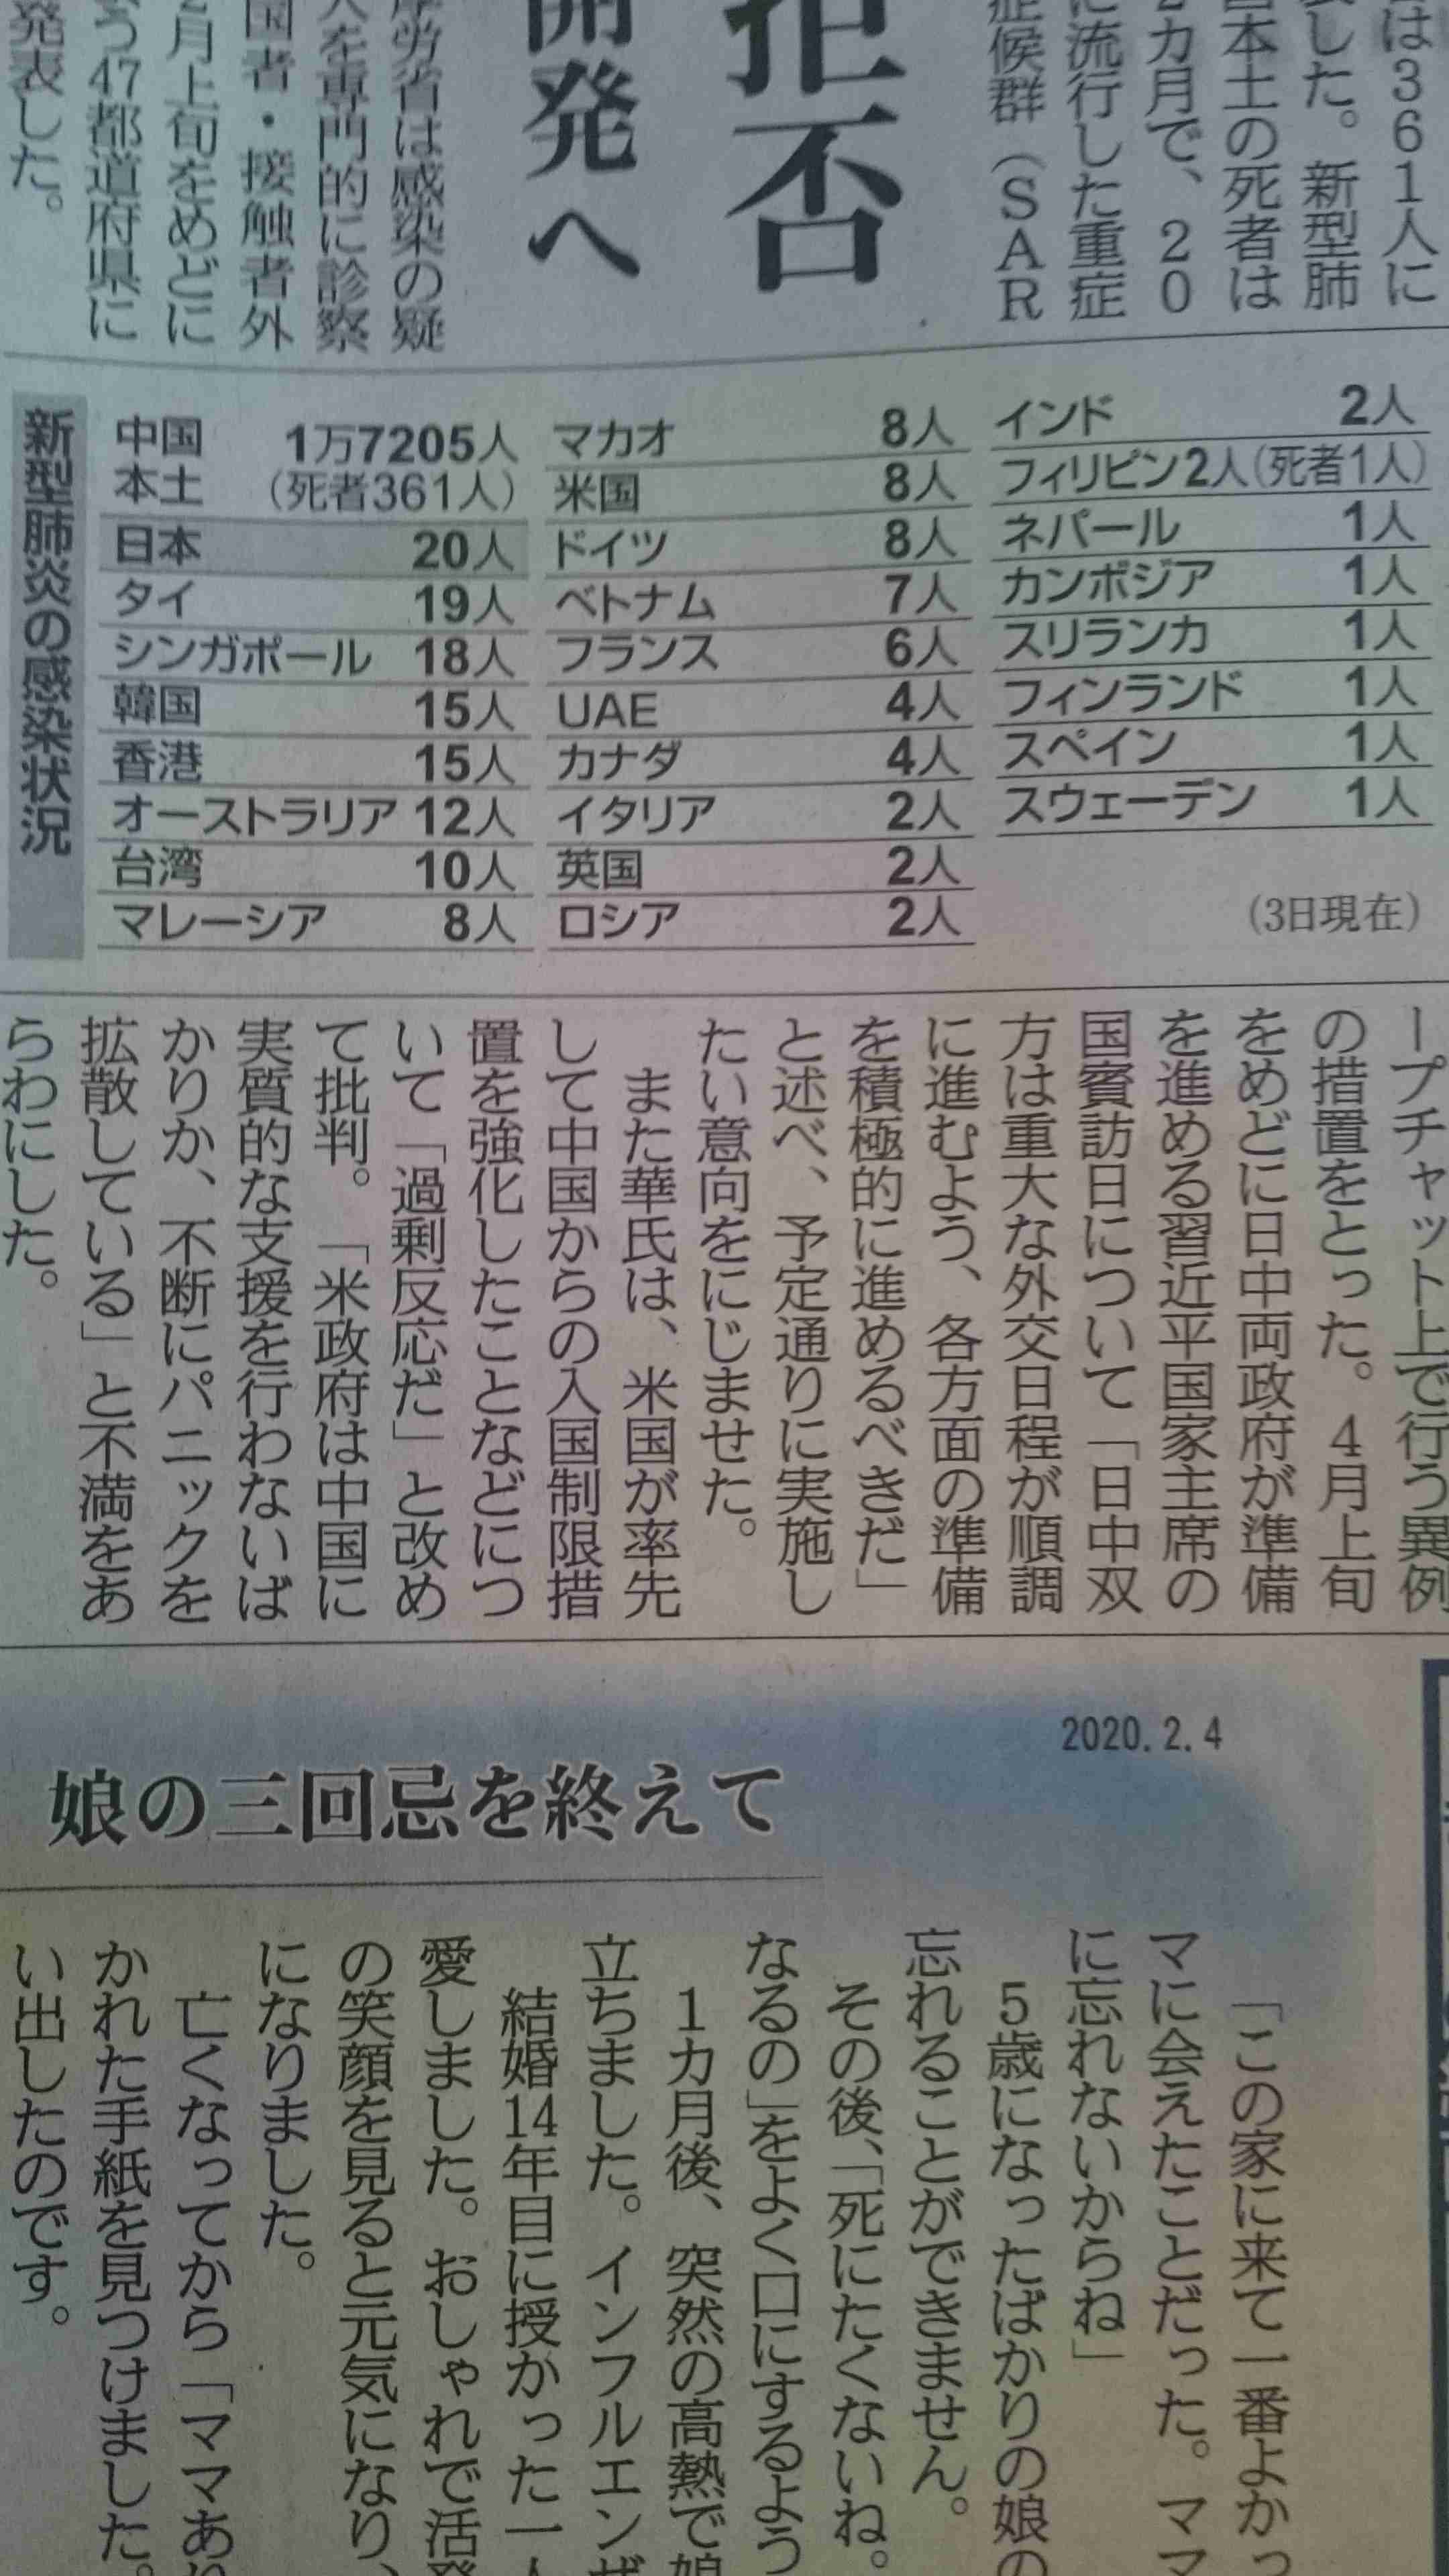 は361人に
した。新型肺
本土の死者は
カ月で、20
に流行した重症
症候群（SAR
拒否
開発へ
厚労省は感染の疑
人を専門的に診察
国者・接触者外
2月上旬をめどに
う47都道府県に
発表した。
新型肺炎の感染状況
中国本土 1万7205人（死者361人）
日本 20人
タイ 19人
シンガポール 18人
韓国 15人
香港 15人
オーストラリア 12人
台湾 10人
マレーシア 8人
マカオ 8人
米国 8人
ドイツ 8人
ベトナム 7人
フランス 6人
UAE 4人
カナダ 4人
イタリア 2人
英国 2人
ロシア 2人
インド 2人
フィリピン 2人（死者1人）
ネパール 1人
カンボジア 1人
スリランカ 1人
フィンランド 1人
スペイン 1人
スウェーデン 1人
（3日現在）
ープチャット上で行う異例
の措置をとった。4月上旬
をめどに日中両政府が準備
を進める習近平国家主席の
国賓訪日について「日中双
方は重大な外交日程が順調
に進むよう、各方面の準備
を積極的に進めるべきだ」
と述べ、予定通りに実施し
たい意向をにじませた。
また華氏は、米国が率先
して中国からの入国制限措
置を強化したことなどにつ
いて「過剰反応だ」と改め
て批判。「米政府は中国に
実質的な支援を行わないば
かりか、不断にパニックを
拡散している」と不満をあ
らわにした。
2020.2.4
娘の三回忌を終えて
「この家に来て一番よかっ
マに会えたことだった。ママ
に忘れないからね」
5歳になったばかりの娘の
忘れることができません。
その後、「死にたくないね。
なるの」をよく口にするよう
1カ月後、突然の高熱で娘
立ちました。インフルエンザ
結婚14年目に授かった一人
愛しました。おしゃれで活発
の笑顔を見ると元気になり、
になりました。
亡くなってから「ママあり
かれた手紙を見つけました。
い出したのです。